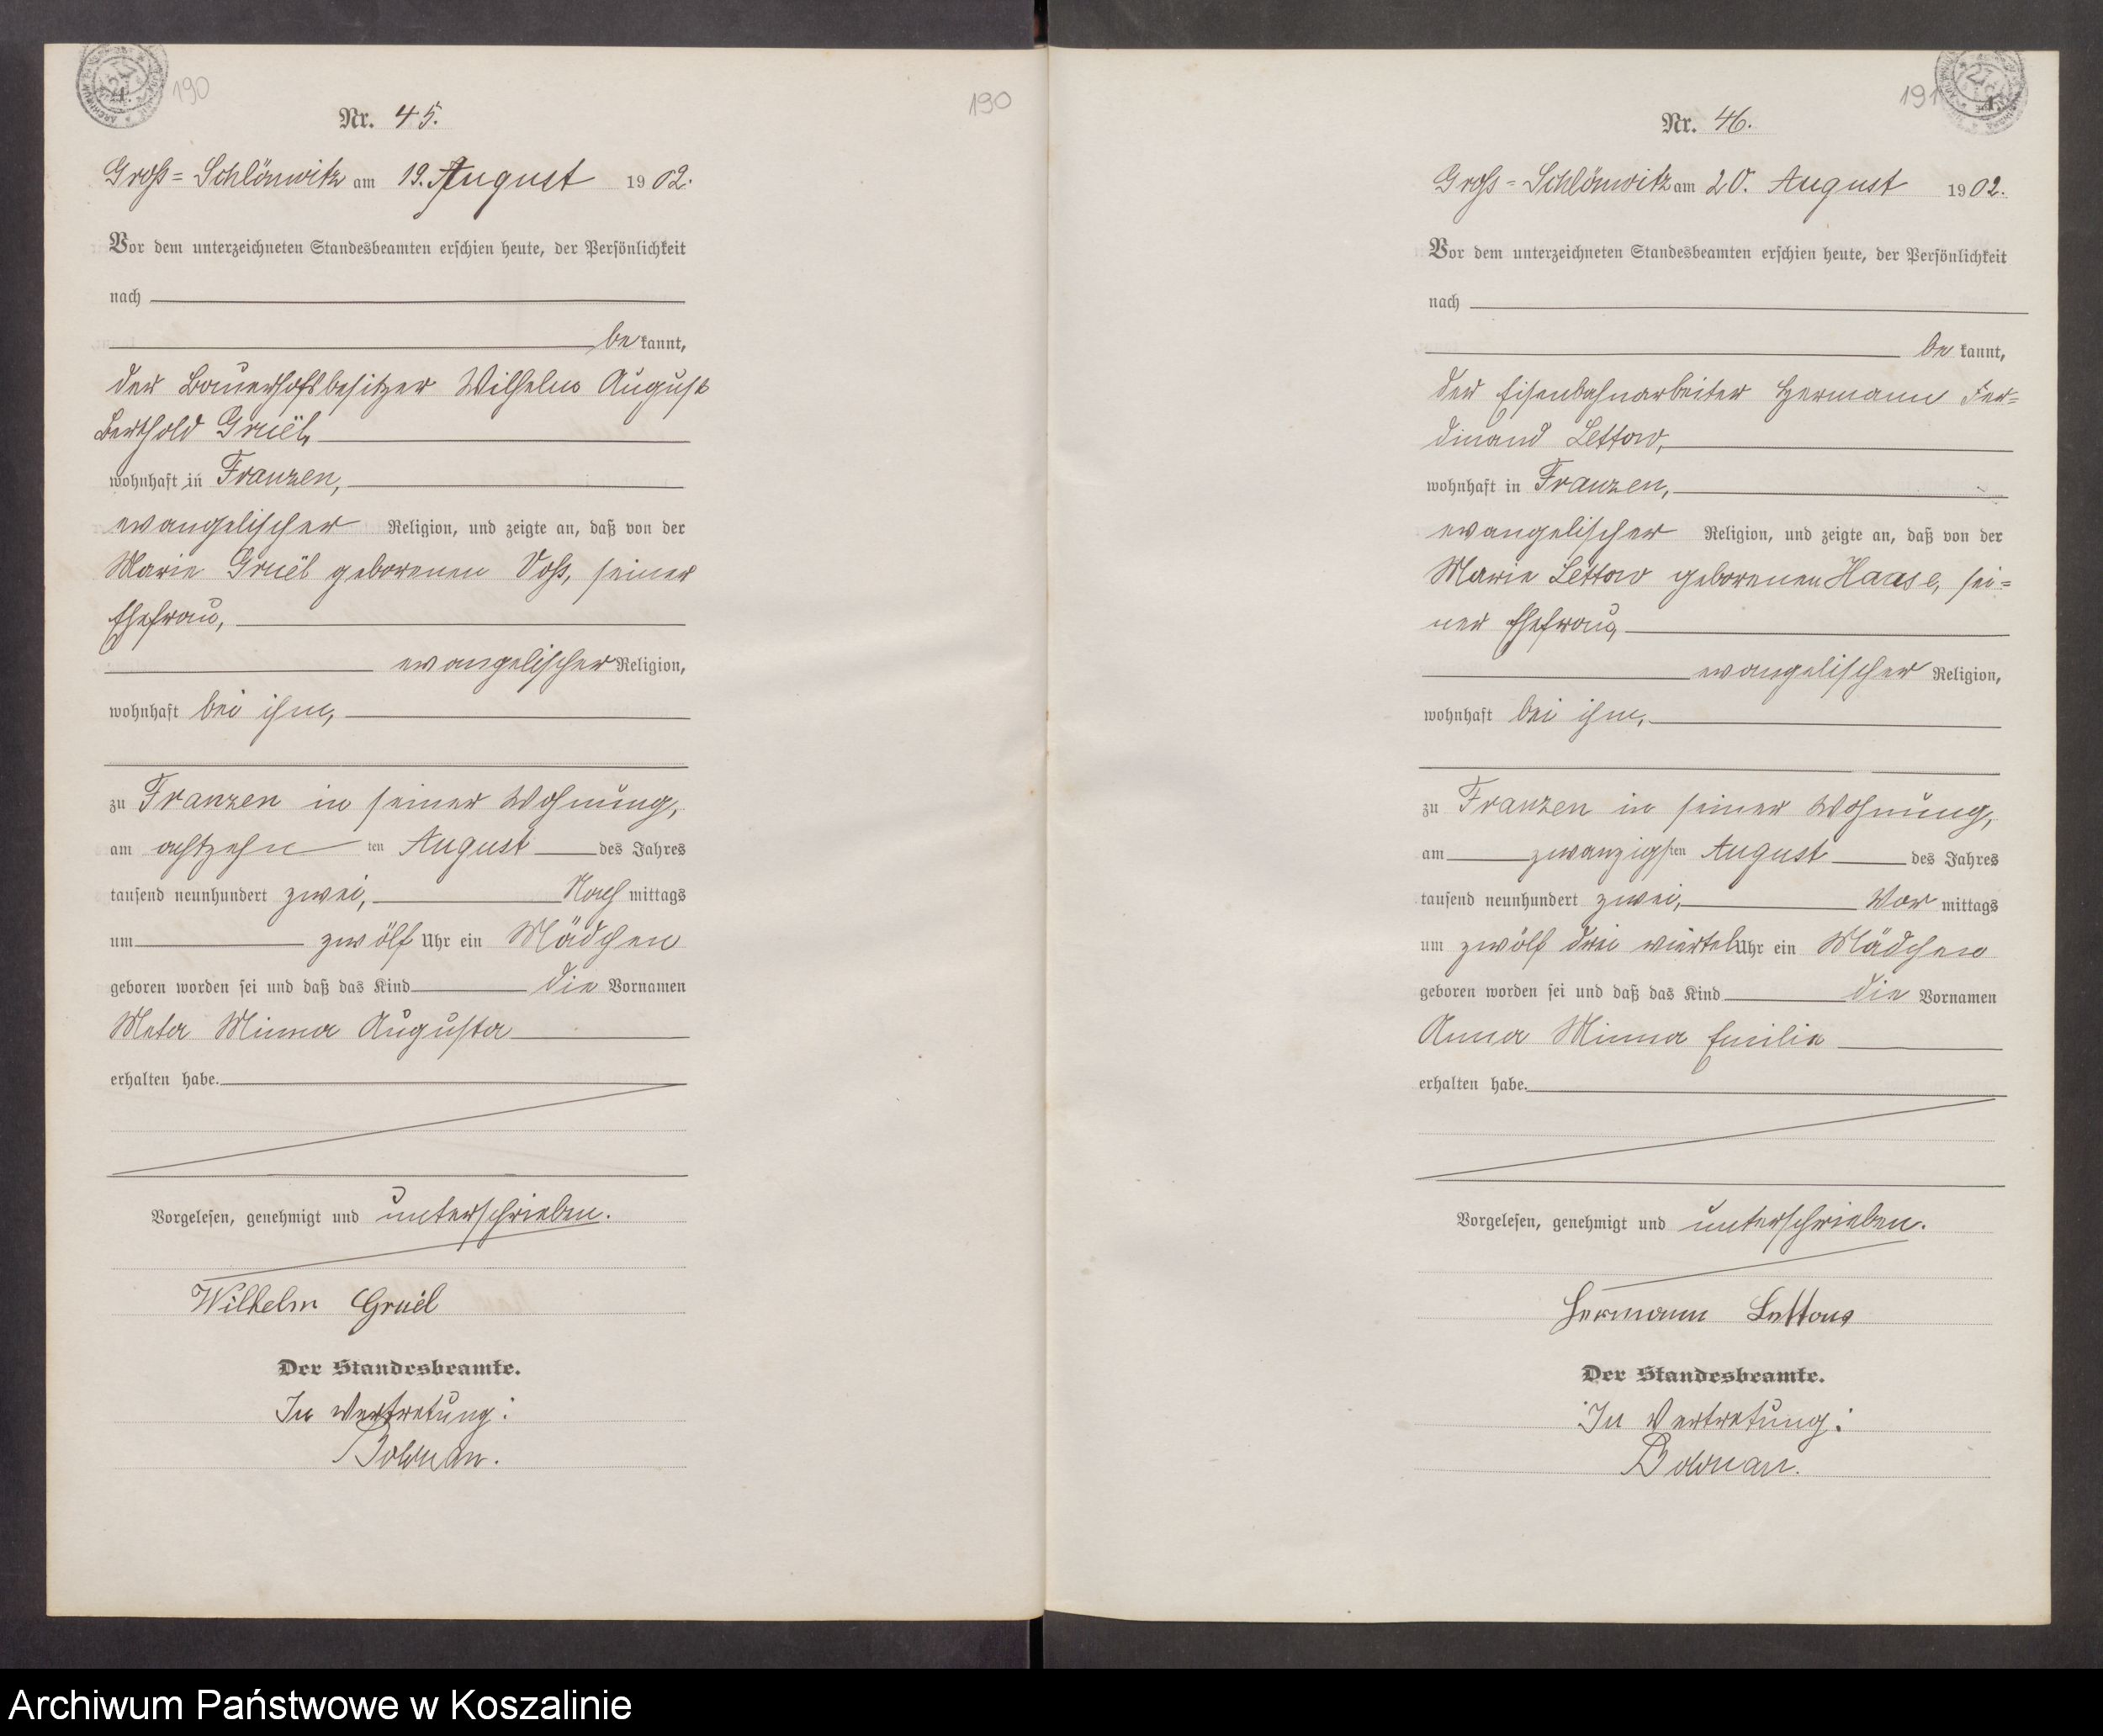 190
190
Nr. 45.
Groß=Schlönwitz am 19. August 1902.
Vor dem unterzeichneten Standesbeamten erschien heute, der Persönlichkeit
nach
be kannt,
der Bauerhofsbesitzer Wilhelm August
Berthold Gruël,
wohnhaft in Franzen,
evangelischer Religion, und zeigte an, daß von der
Marie Gruël geborenen Voß, seiner
Ehefrau,
evangelischer Religion,
wohnhaft bei ihm,
zu Franzen in seiner Wohnung,
am achtzehn ten August des Jahres
tausend neunhundert zwei, Nach mittags
um zwölf Uhr ein Mädchen
geboren worden sei und daß das Kind die Vornamen
Meta Minna Augusta
erhalten habe.
Vorgelesen, genehmigt und unterschrieben.
Wilhelm Gruël
Der Standesbeamte.
In Vertretung:
191
Nr. 46.
Groß=Schlönwitz am 20. August 1902.
Vor dem unterzeichneten Standesbeamten erschien heute, der Persönlichkeit
nach
be kannt,
der Eisenbahnarbeiter Hermann Fer=
dinand Lettow,
wohnhaft in Franzen,
evangelischer Religion, und zeigte an, daß von der
Marie Lettow geborenen Haase, sei=
ner Ehefrau,
evangelischer Religion,
wohnhaft bei ihm,
zu Franzen in seiner Wohnung,
am zwanzigsten August des Jahres
tausend neunhundert zwei, Vor mittags
um zwölf drei viertel Uhr ein Mädchen
geboren worden sei und daß das Kind die Vornamen
Anna Minna Emilie
erhalten habe.
Vorgelesen, genehmigt und unterschrieben.
Hermann Lettow
Der Standesbeamte.
In Vertretung:
Archiwum Państwowe w Koszalinie